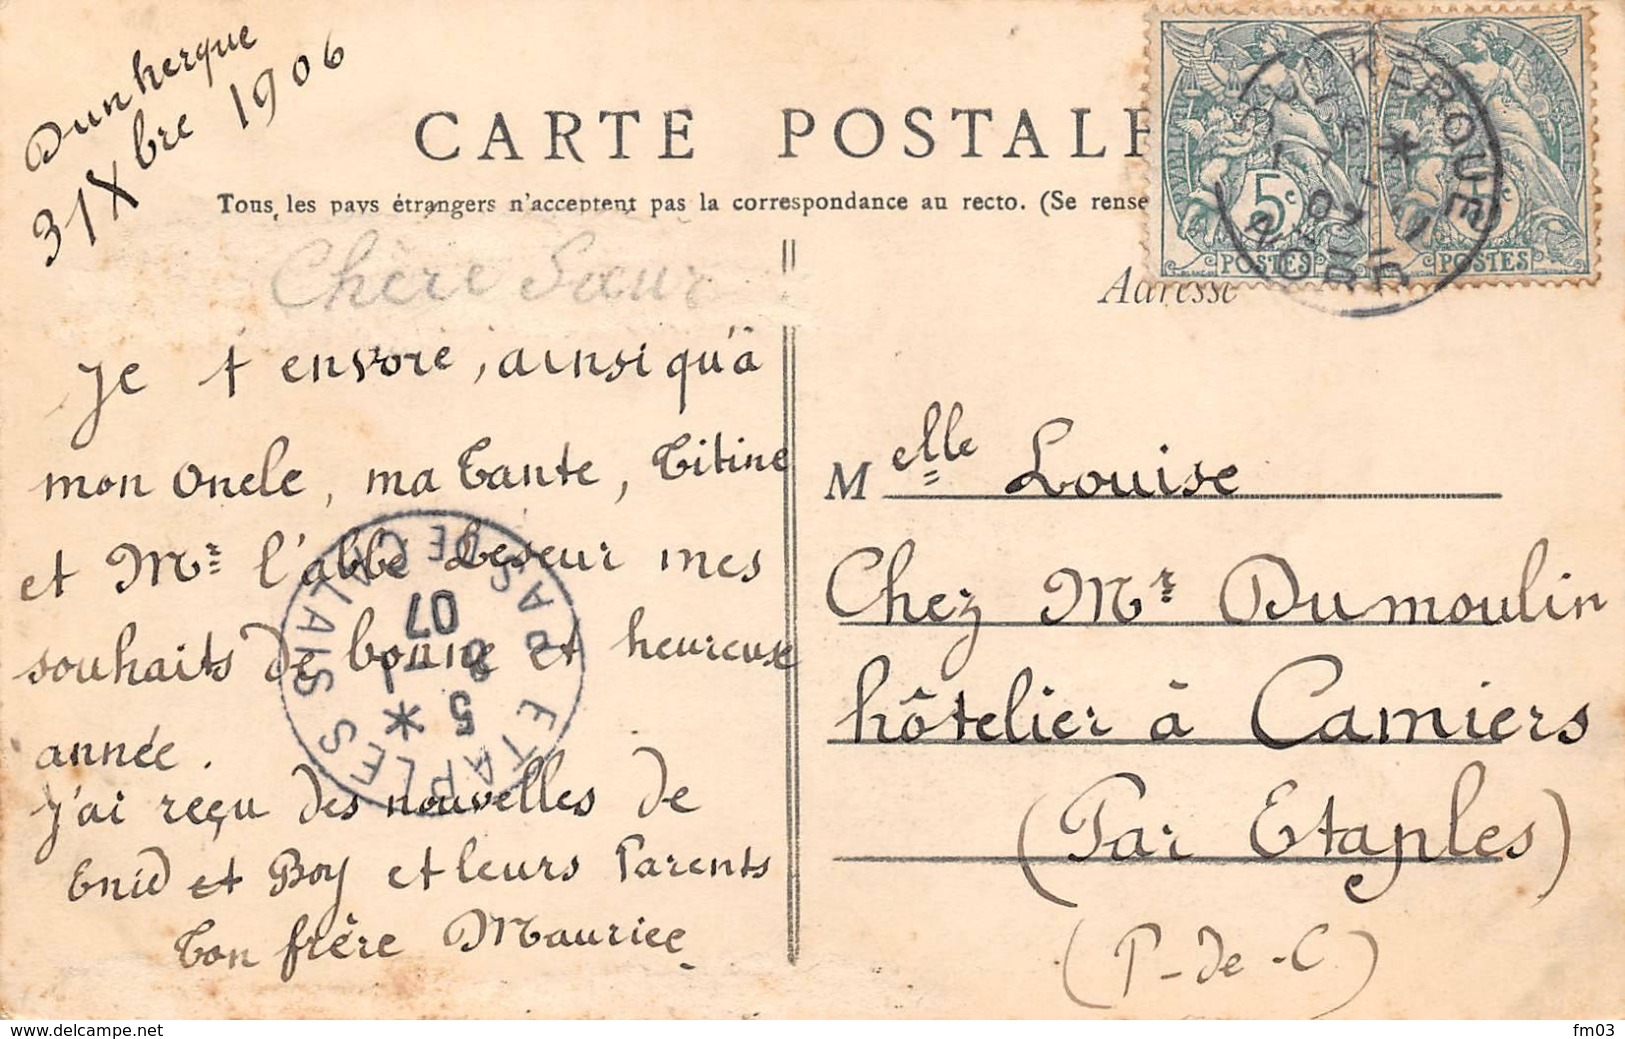 Dunkerque
31 Xbre 1906
CARTE POSTALE
Tous les pays étrangers n'acceptent pas la correspondance au recto. (Se rense
Chère Sœur
Je t'envoie, ainsi qu'à
mon Oncle, ma Tante, Titine
et Mr l'abbé Leseur mes
souhaits de bonne et heureuse
année.
J'ai reçu des nouvelles de
Enid et Boy et leurs Parents
Ton frère Maurice
Adresse
Melle Louise
Chez Mr Dumoulin
hôtelier à Camiers
(Par Etaples)
(P-de-C)
5c
POSTES
POSTES
DUNKERQUE
NORD
ETAPLES
PAS DE CALAIS
5 *
07
delcampe.net
fm03